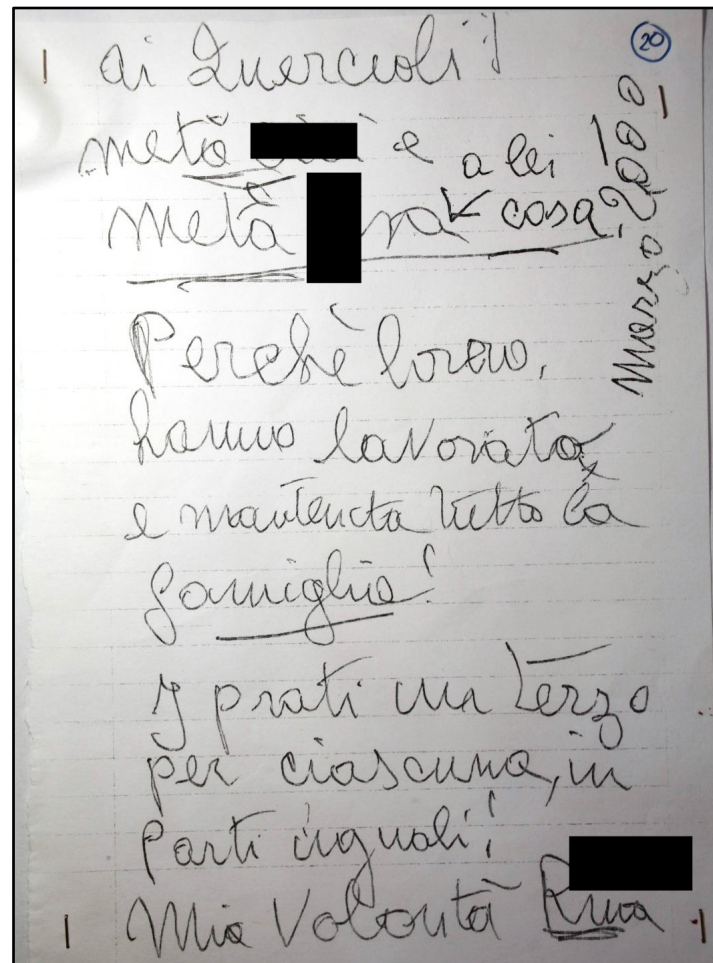 20
ai Quercioli!
metà e a lei
metà cosa
Marzo 2000
Perchè loro,
hanno lavorato
e mantenuta tutto la
famiglia!
I prati un terzo
per ciascuna, in
parti uguali!
Mia Volontà